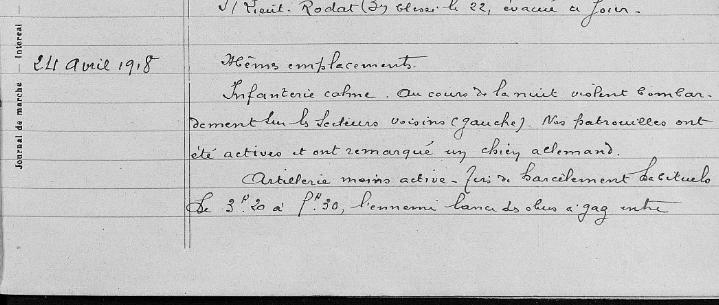 S/ Lieut. Rodat (3) blessé le 22, évacué ce jour.
Journal de marche — Intercal
24 avril 1918
Mêmes emplacements.
Infanterie calme. Au cours de la nuit violent bombar-
dement sur les secteurs voisins (gauche). Nos patrouilles ont
été actives et ont remarqué un chien allemand.
Artillerie moins active - Tirs de harcèlement habituels
De 3h20 à 5h30, l'ennemi lance des obus à gaz entre